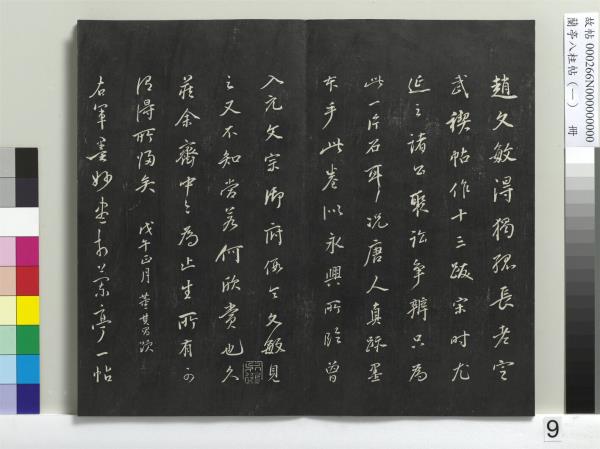 趙文敏得獨孤長老定
武禊帖作十三跋宋時尤
延之諸公聚訟爭辯只為
此一片石耳況唐人真跡墨
本乎此卷似永興所臨曾
入元文宗御府假令文敏見
之又不知當若何欣賞也久
藏余齋中今為止生所有可
謂得所歸矣
戊午正月董其昌題
右軍墨妙盡於蘭亭一帖
故帖 000266N000000000
蘭亭八柱帖(一) 冊
9